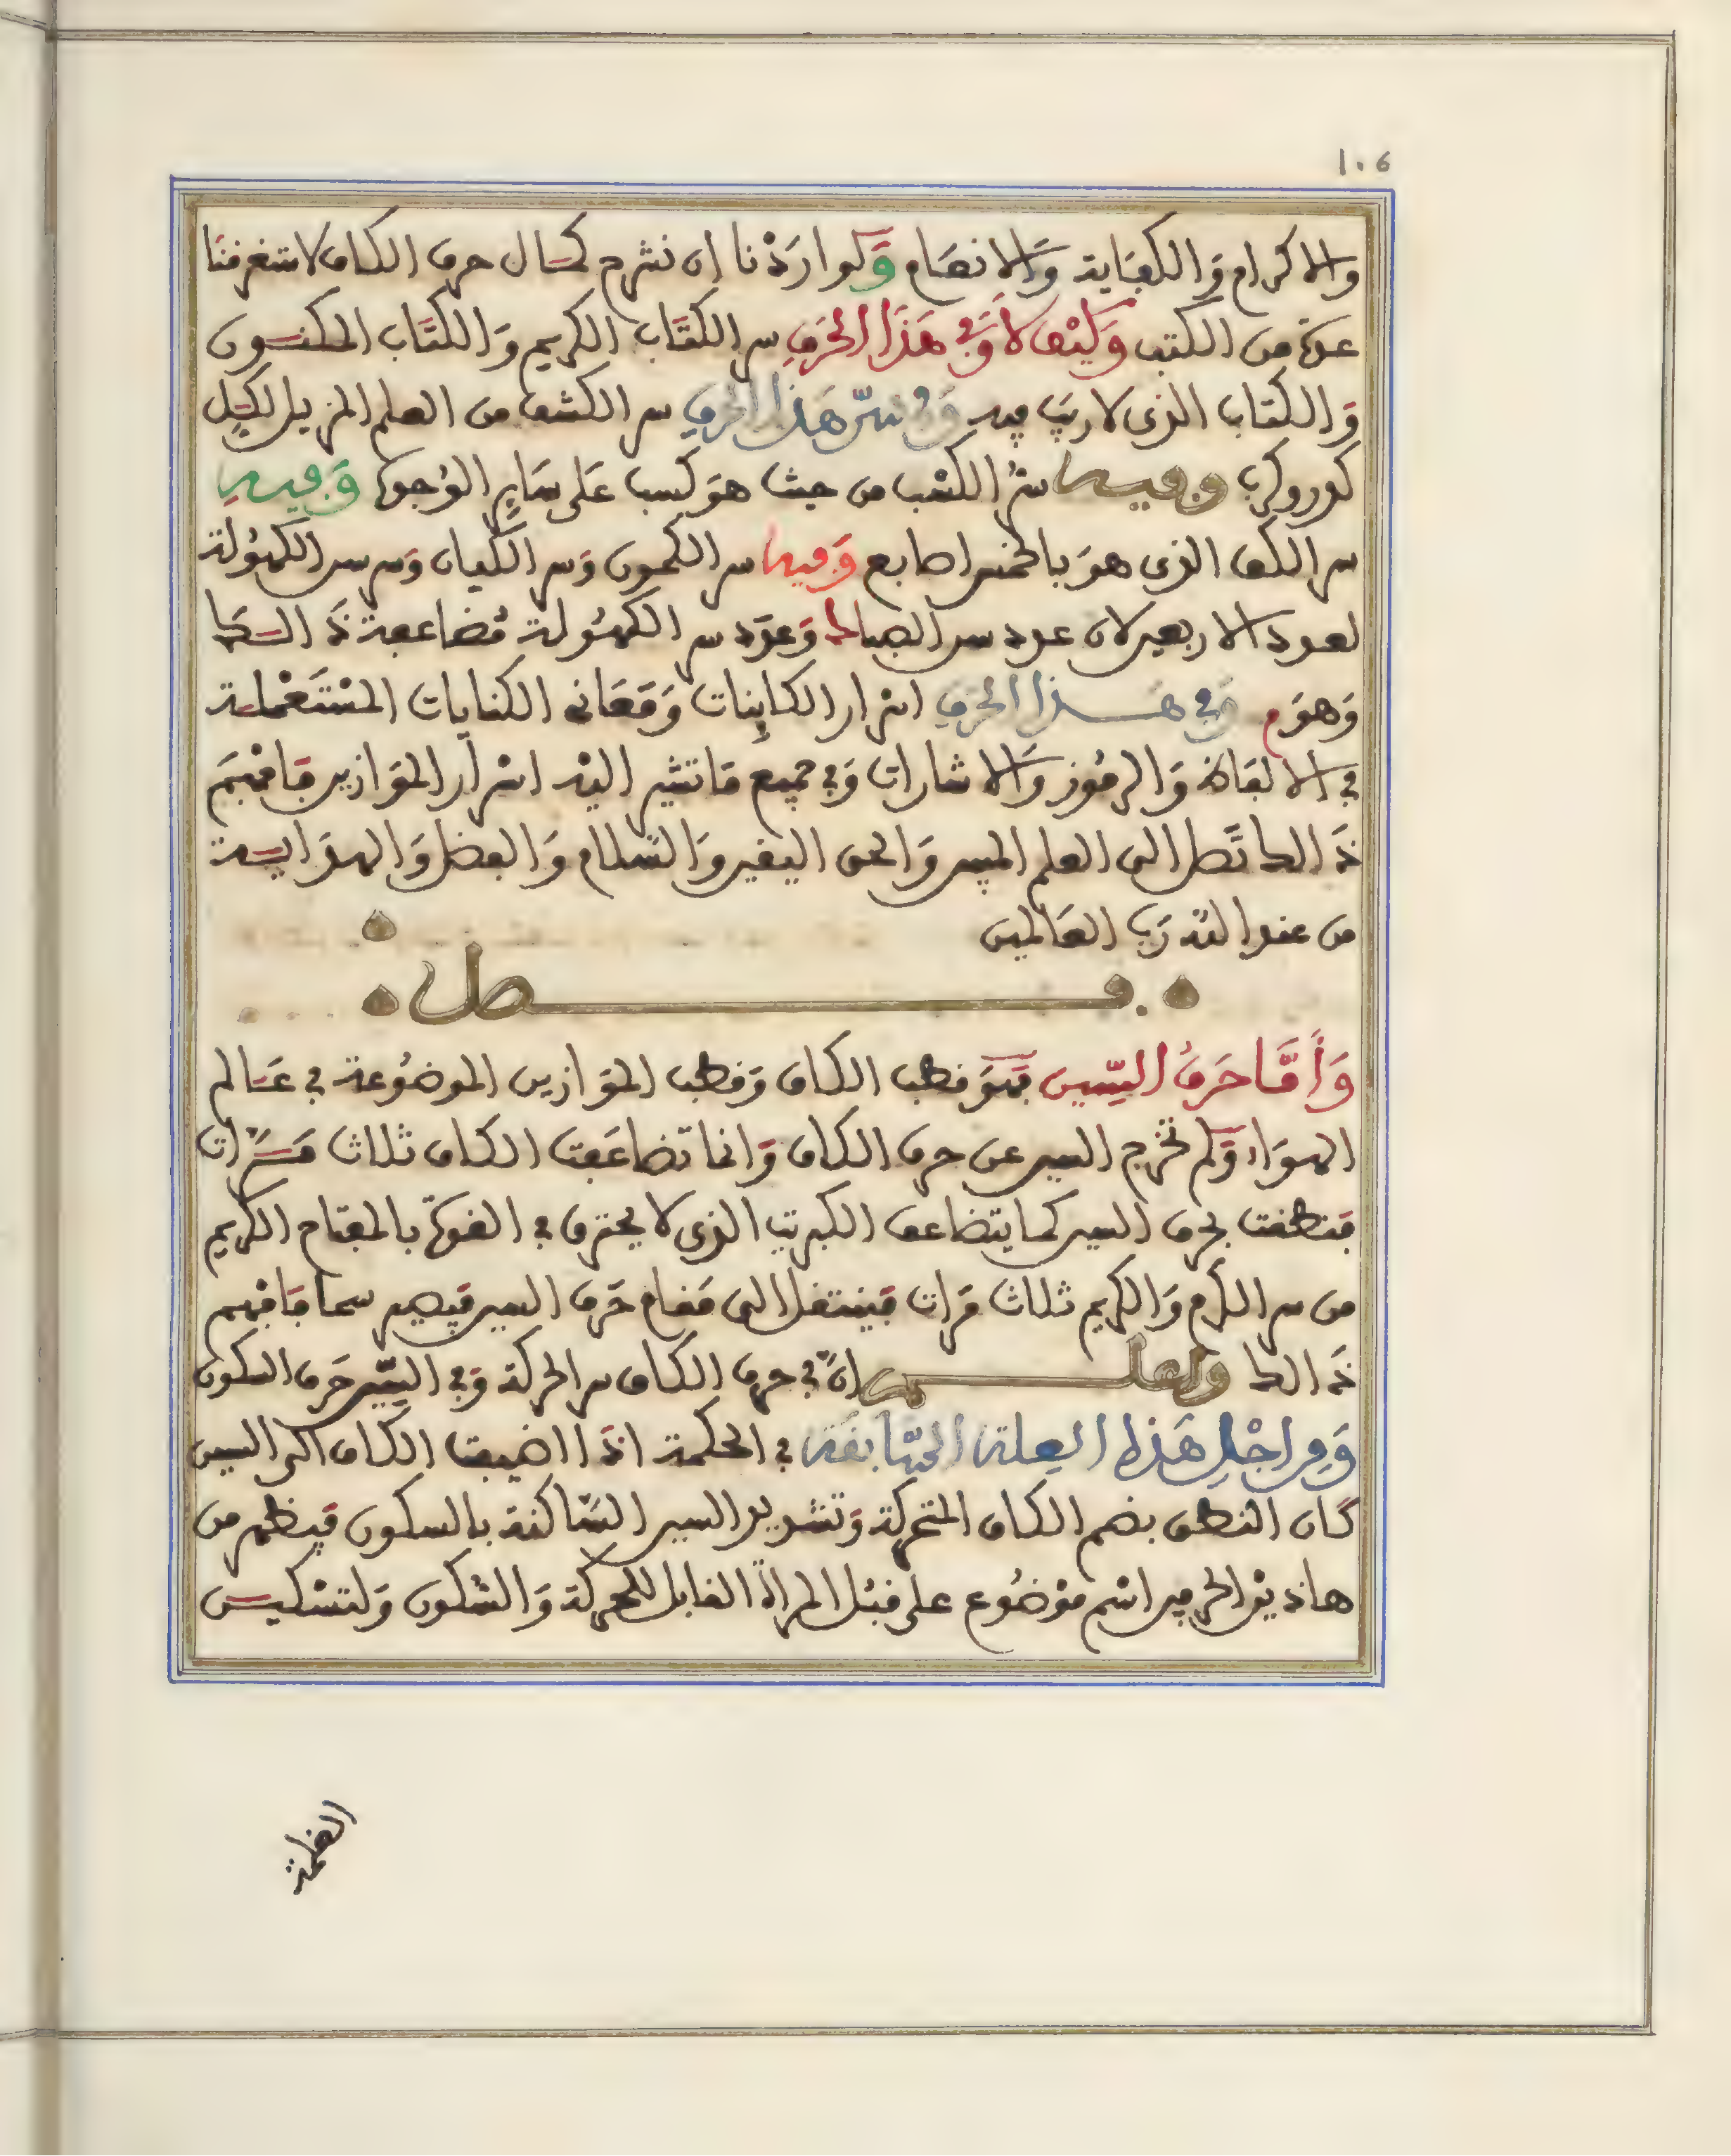 ١٠٦
والاكرام والكفاية والانعام ولو اردنا ان نشرح كمال حرف الكاف لاستغرقنا
عدة من الكتب وكيف لا وفي هذا الحرف سر الكتاب الكريم والكتاب المكنون
والكتاب الذى لا ريب فيه وفي سر هذا الحرف سر الكشف من العلم المزيل لكل
كدر وكرب وفيه سر الكسب من حيث هو كسب على ساير الوجوه وفيه
سر الكف الذى هو بالخمس اصابع وفيه سر الكمون وسر الكيان وسر سن الكهولة
لعدد الاربعين لان عدد سن الصبا ك وعدد سن الكهولة مضاعفة ذالك
وهو م وفي هذا الحرف اسرار الكاينات ومعانى الكنايات المستعملة
في الالفاظ والرموز والاشارات وفي جميع ما تشير اليه اسرار الموازين فافهم
ذالك تصل الى العلم المبين والحق اليقين والسلام والفضل والهداية
من عند الله رب العالمين
فصل
وأما حرف السين فهو قطب الكاف وقطب الموازين الموضوعة في عالم
الهواء ولم تخرج السين عن حرف الكاف وانما تضاعفت الكاف ثلاث مرات
فنطقت بحرف السين كما يتضاعف الكبريت الذى لا يحترق في القوة بالمقام الكريم
من سر الكرم والكريم ثلاث مرات فينتقل الى مقام حرف السين فيصير سما فافهم
ذالك واعلم ان في حرف الكاف سر الحركة وفي السين حرف السكون
ومن اجل هذه العلة السابقة في الحكمة اذا اضيفت الكاف الى السين
كان النطق بضم الكاف المتحركة وتشديد السين الساكنة بالسكون فيظهر من
هاذين الحرفين اسم موضوع على قبل المراة القابل للحركة والسكون ولتسكين
الغلمة